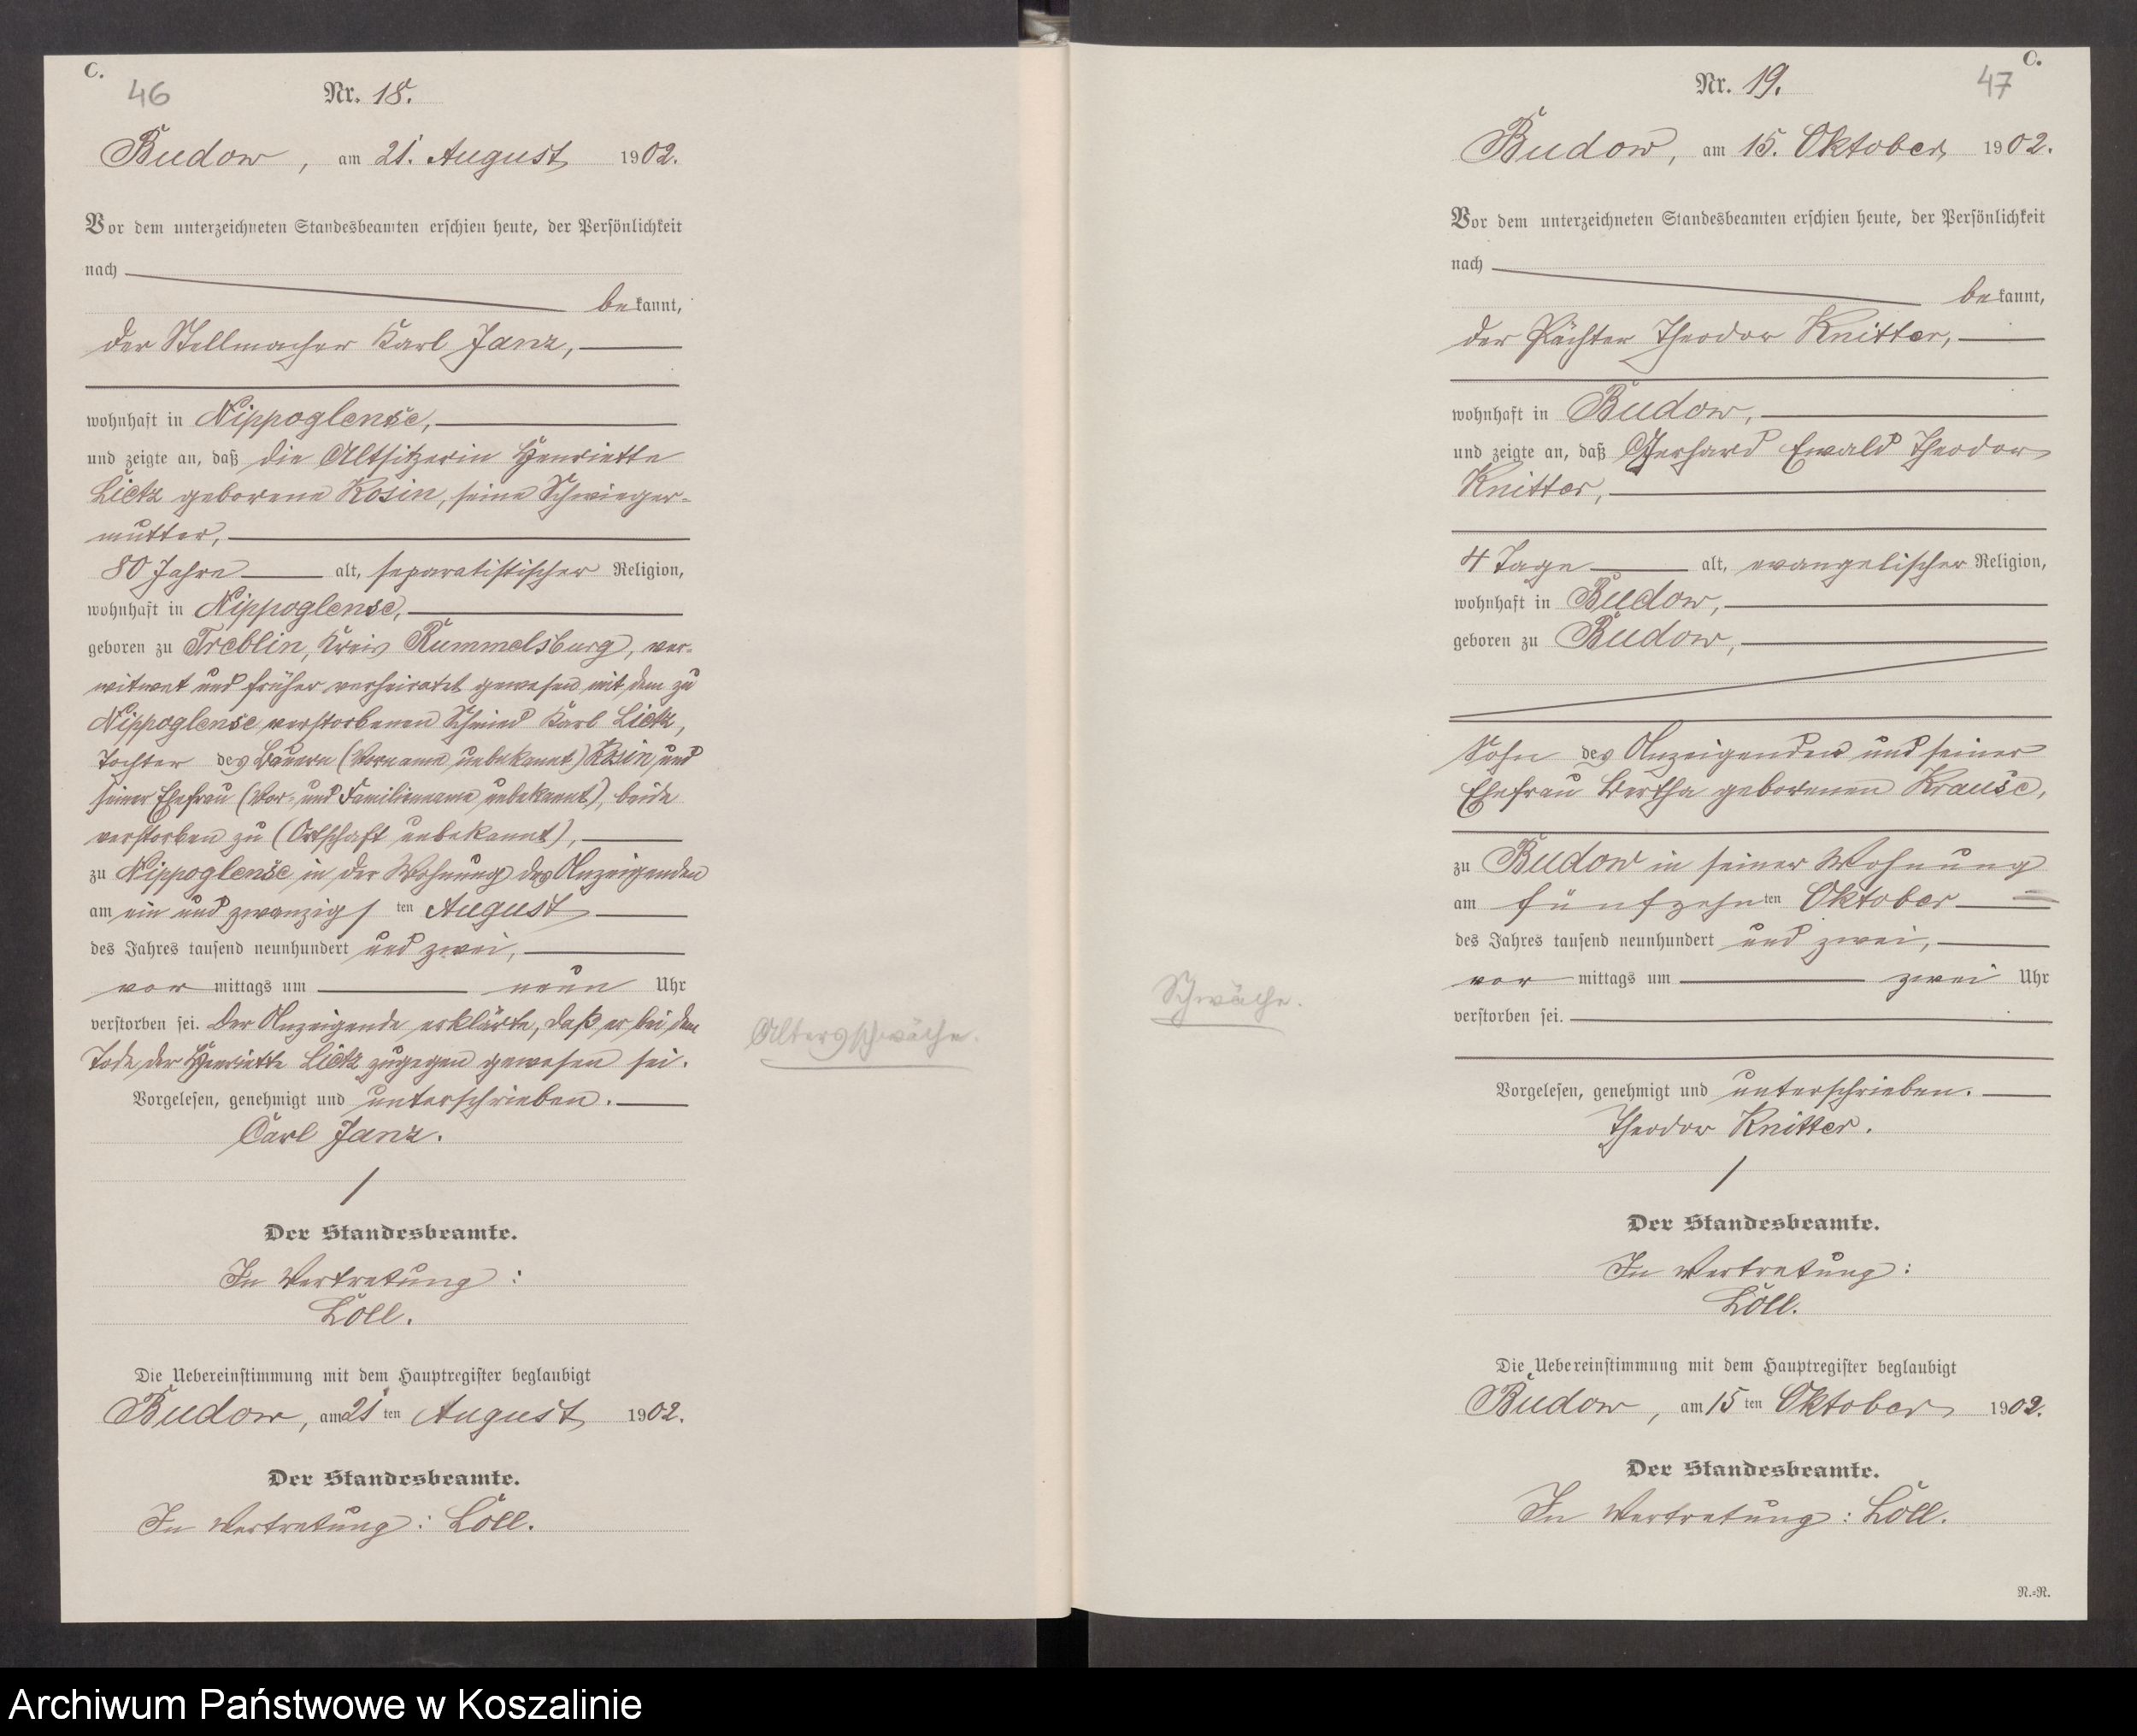 C.
46
Nr. 18.
Budow, am 21. August 1902.
Vor dem unterzeichneten Standesbeamten erschien heute, der Persönlichkeit
nach
bekannt,
der Stellmacher Karl Janz,
wohnhaft in Nippoglense,
und zeigte an, daß die Altsitzerin Henriette
Lietz geborene Kosin, seine Schwieger-
mutter,
80 Jahre alt, separatistischer Religion,
wohnhaft in Nippoglense,
geboren zu Treblin, Kreis Rummelsburg, ver-
witwet und früher verheiratet gewesen mit dem zu
Nippoglense verstorbenen Schmied Karl Lietz,
Tochter des Bauern (Vorname unbekannt) Kosin und
seiner Ehefrau (Vor- und Familienname unbekannt), beide
verstorben zu (Ortschaft unbekannt),
zu Nippoglense in der Wohnung des Anzeigenden
am ein und zwanzigsten August
des Jahres tausend neunhundert und zwei,
vormittags um neun Uhr
verstorben sei. Der Anzeigende erklärte, daß er bei dem
Tode der Henriette Lietz zugegen gewesen sei.
Vorgelesen, genehmigt und unterschrieben.
Carl Janz.
Der Standesbeamte.
In Vertretung:
Löll.
Die Uebereinstimmung mit dem Hauptregister beglaubigt
Budow, am 21ten August 1902.
Der Standesbeamte.
In Vertretung: Löll.
Altersschwäche.
C.
47
Nr. 19.
Budow, am 15. Oktober 1902.
Vor dem unterzeichneten Standesbeamten erschien heute, der Persönlichkeit
nach
bekannt,
der Pächter Theodor Knitter,
wohnhaft in Budow,
und zeigte an, daß Gerhard Ewald Theodor
Knitter,
4 Tage alt, evangelischer Religion,
wohnhaft in Budow,
geboren zu Budow,
Sohn des Anzeigenden und seiner
Ehefrau Bertha geborenen Krause,
zu Budow in seiner Wohnung
am fünfzehnten Oktober
des Jahres tausend neunhundert und zwei,
vormittags um zwei Uhr
verstorben sei.
Schwäche.
Vorgelesen, genehmigt und unterschrieben.
Theodor Knitter.
Der Standesbeamte.
In Vertretung:
Löll.
Die Uebereinstimmung mit dem Hauptregister beglaubigt
Budow, am 15ten Oktober 1902.
Der Standesbeamte.
In Vertretung: Löll.
N.=N.
Archiwum Państwowe w Koszalinie